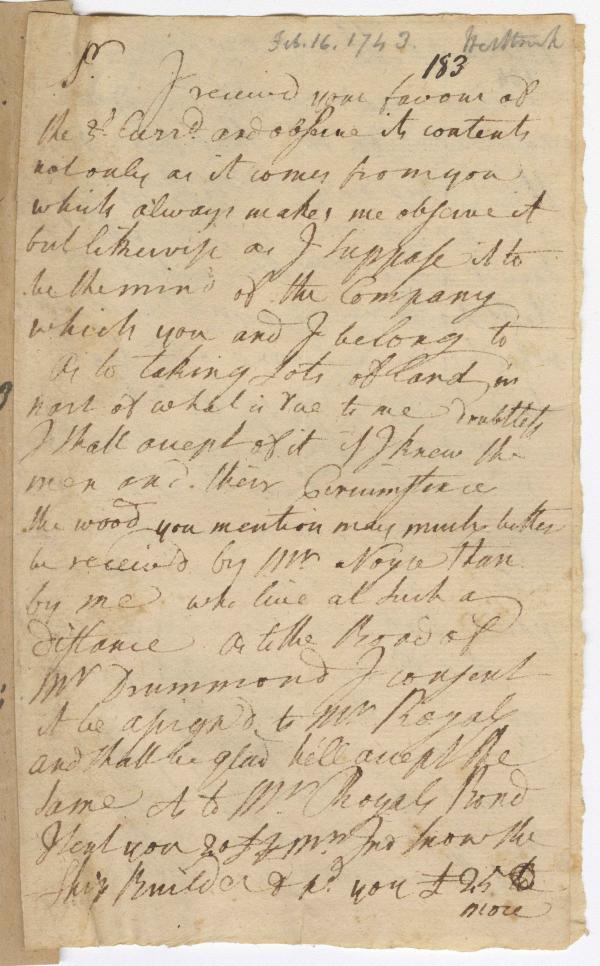 Feb. 16. 1743.
183
Sr. I received your favour of
the 3d. Currt. and observe its contents
not only as it comes from you
which always makes me observe it
but likewise as I suppose it to
be the mind of the Company
which you and I belong to
As to taking Lots of Land in
part of what is due to me doubtless
I shall accept of it if I knew the
men and their Circumstence
the wood you mention may much better
be received by Mr Noyce than
by me who live at such a
distance As to the Bond of
Mr Drummond I consent
it be asigned to Mr Royal
and shall be glad he'll accept the
same As to Mr Royals Bond
I sent you 20£ Mr Ind the
Ship Builder pd. you £25
more